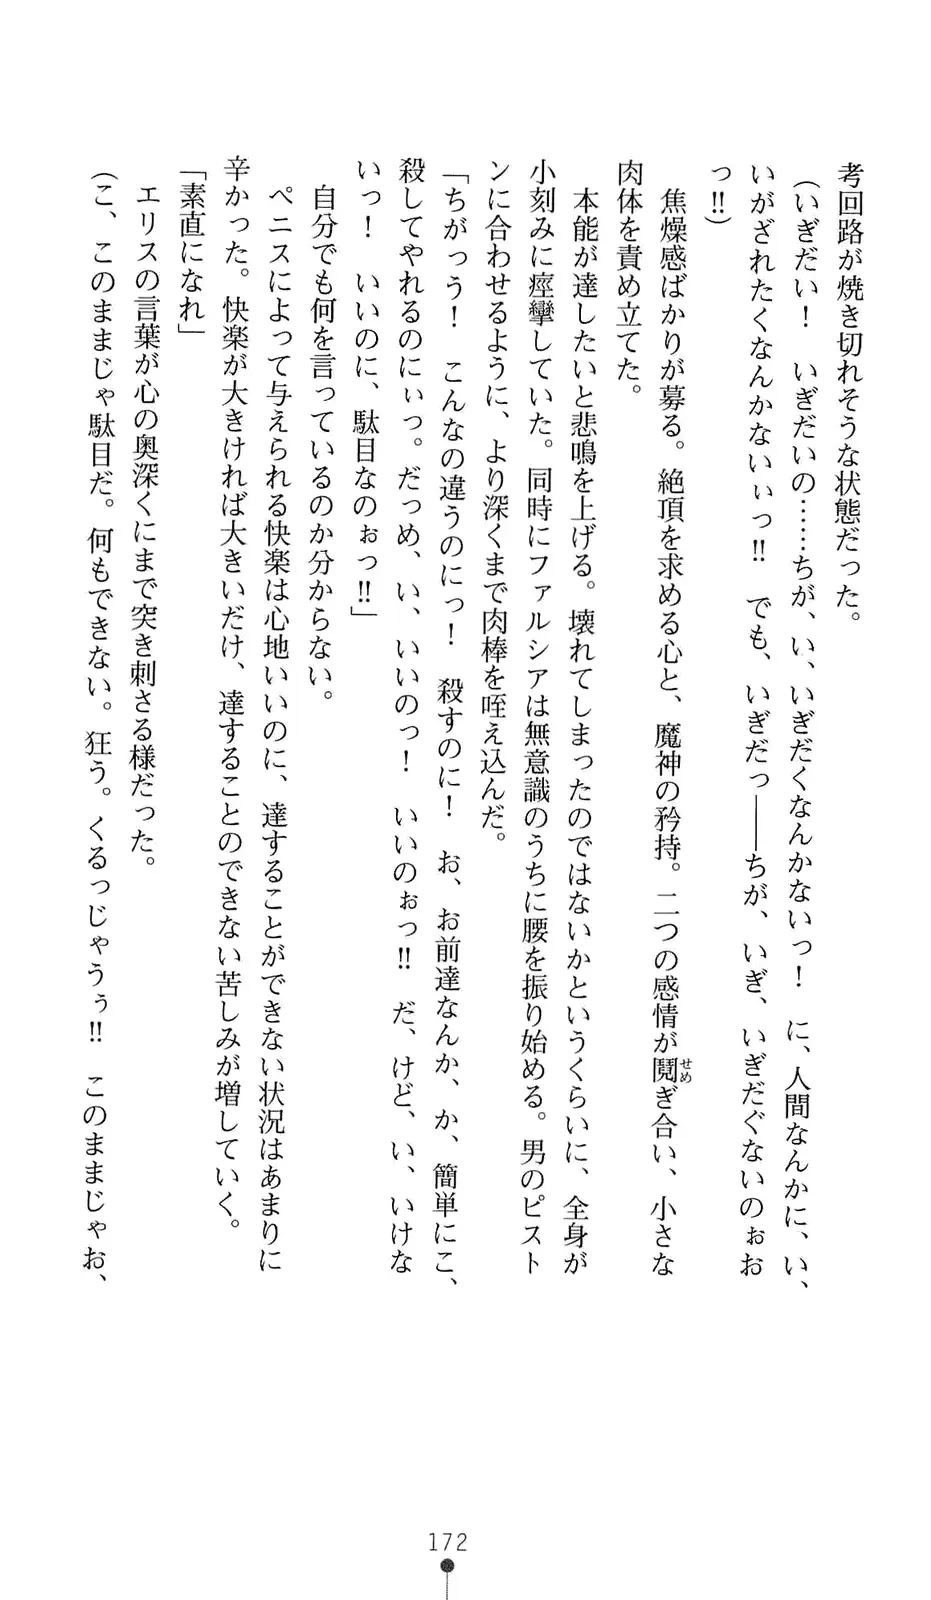 考回路が焼き切れそうな状態だった。
（いぎだい！　いぎだいの……ちが、い、いぎだくなんかないっ！　に、人間なんかに、い、
いがざれたくなんかないぃっ!!　でも、いぎだっ――ちが、いぎ、いぎだぐないのぉお
っ!!）
　焦燥感ばかりが募る。絶頂を求める心と、魔神の矜持。二つの感情が鬩ぎ合い、小さな
せめ
肉体を責め立てた。
　本能が達したいと悲鳴を上げる。壊れてしまったのではないかというくらいに、全身が
小刻みに痙攣していた。同時にファルシアは無意識のうちに腰を振り始める。男のピスト
ンに合わせるように、より深くまで肉棒を咥え込んだ。
「ちがっう！　こんなの違うのにっ！　殺すのに！　お、お前達なんか、か、簡単にこ、
殺してやれるのにぃっ。だっめ、い、いいのっ！　いいのぉっ!!　だ、けど、い、いけな
いっ！　いいのに、駄目なのぉっ!!」
　自分でも何を言っているのか分からない。
　ペニスによって与えられる快楽は心地いいのに、達することができない状況はあまりに
辛かった。快楽が大きければ大きいだけ、達することのできない苦しみが増していく。
「素直になれ」
　エリスの言葉が心の奥深くにまで突き刺さる様だった。
（こ、このままじゃ駄目だ。何もできない。狂う。くるっじゃうぅ!!　このままじゃお、
172